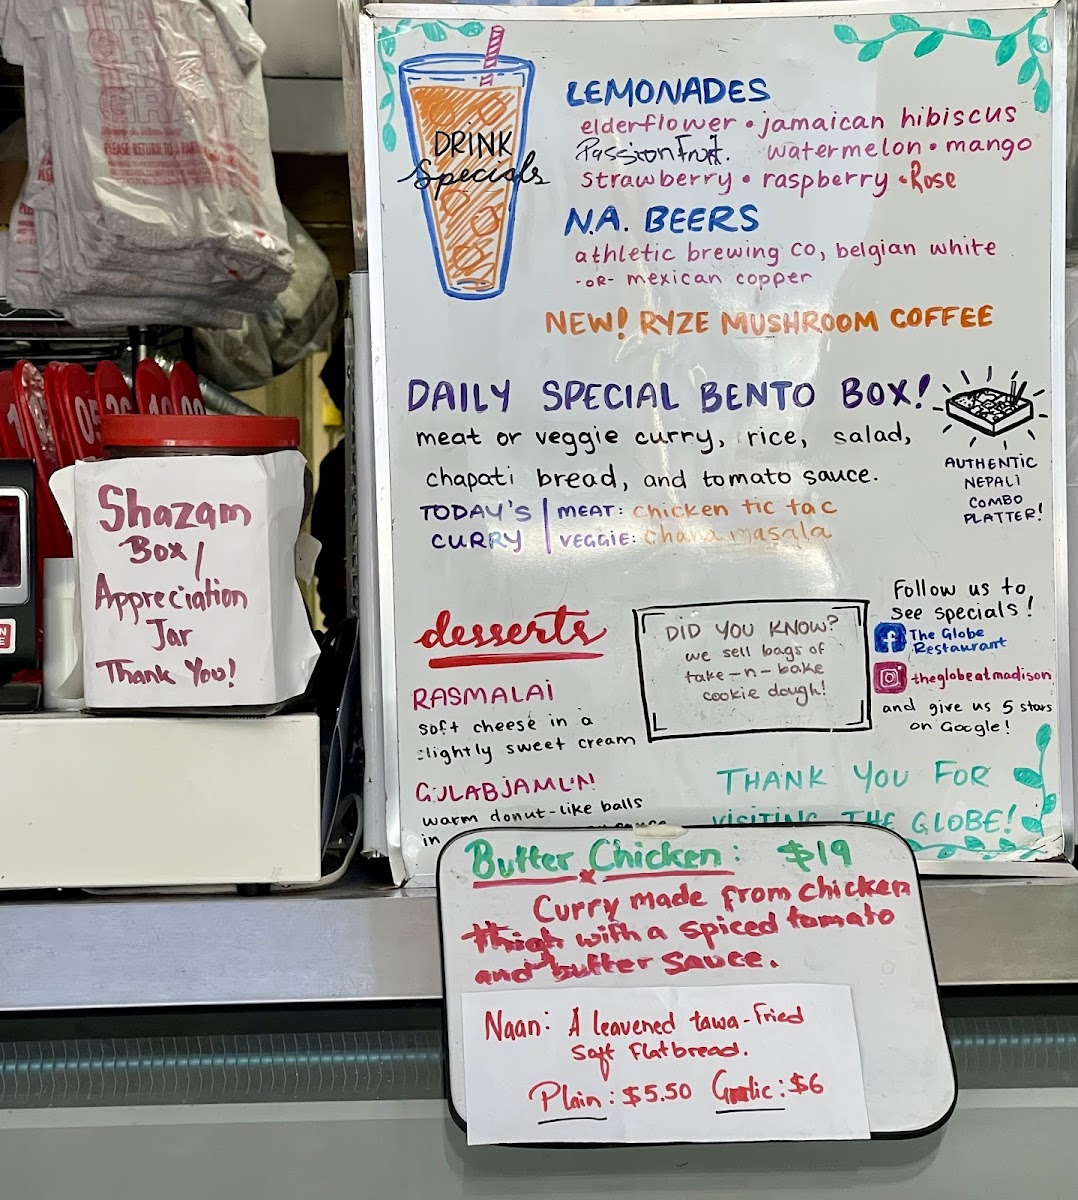 DRINK
Specials
LEMONADES
elderflower • jamaican hibiscus
Passion Fruit. watermelon • mango
strawberry • raspberry • Rose
N.A. BEERS
athletic brewing co, belgian white
-OR- mexican copper
NEW! RYZE MUSHROOM COFFEE
DAILY SPECIAL BENTO BOX!
meat or veggie curry, rice, salad,
chapati bread, and tomato sauce.
AUTHENTIC
NEPALI
COMBO
PLATTER!
TODAY'S MEAT: chicken tic tac
CURRY VEGGIE: chana masala
desserts
RASMALAI
soft cheese in a
slightly sweet cream
GULABJAMUN
warm donut-like balls
in
DID YOU KNOW?
we sell bags of
take-n-bake
cookie dough!
Follow us to
see specials!
The Globe
Restaurant
theglobeatmadison
and give us 5 stars
on Google!
THANK YOU FOR
VISITING THE GLOBE!
Butter Chicken: $19
Curry made from chicken
thigh with a spiced tomato
and butter sauce.
Naan: A leavened tawa-fried
soft flatbread.
Plain: $5.50 Garlic: $6
Shazam
Box/
Appreciation
Jar
Thank You!
PLEASE RETURN TO A
05